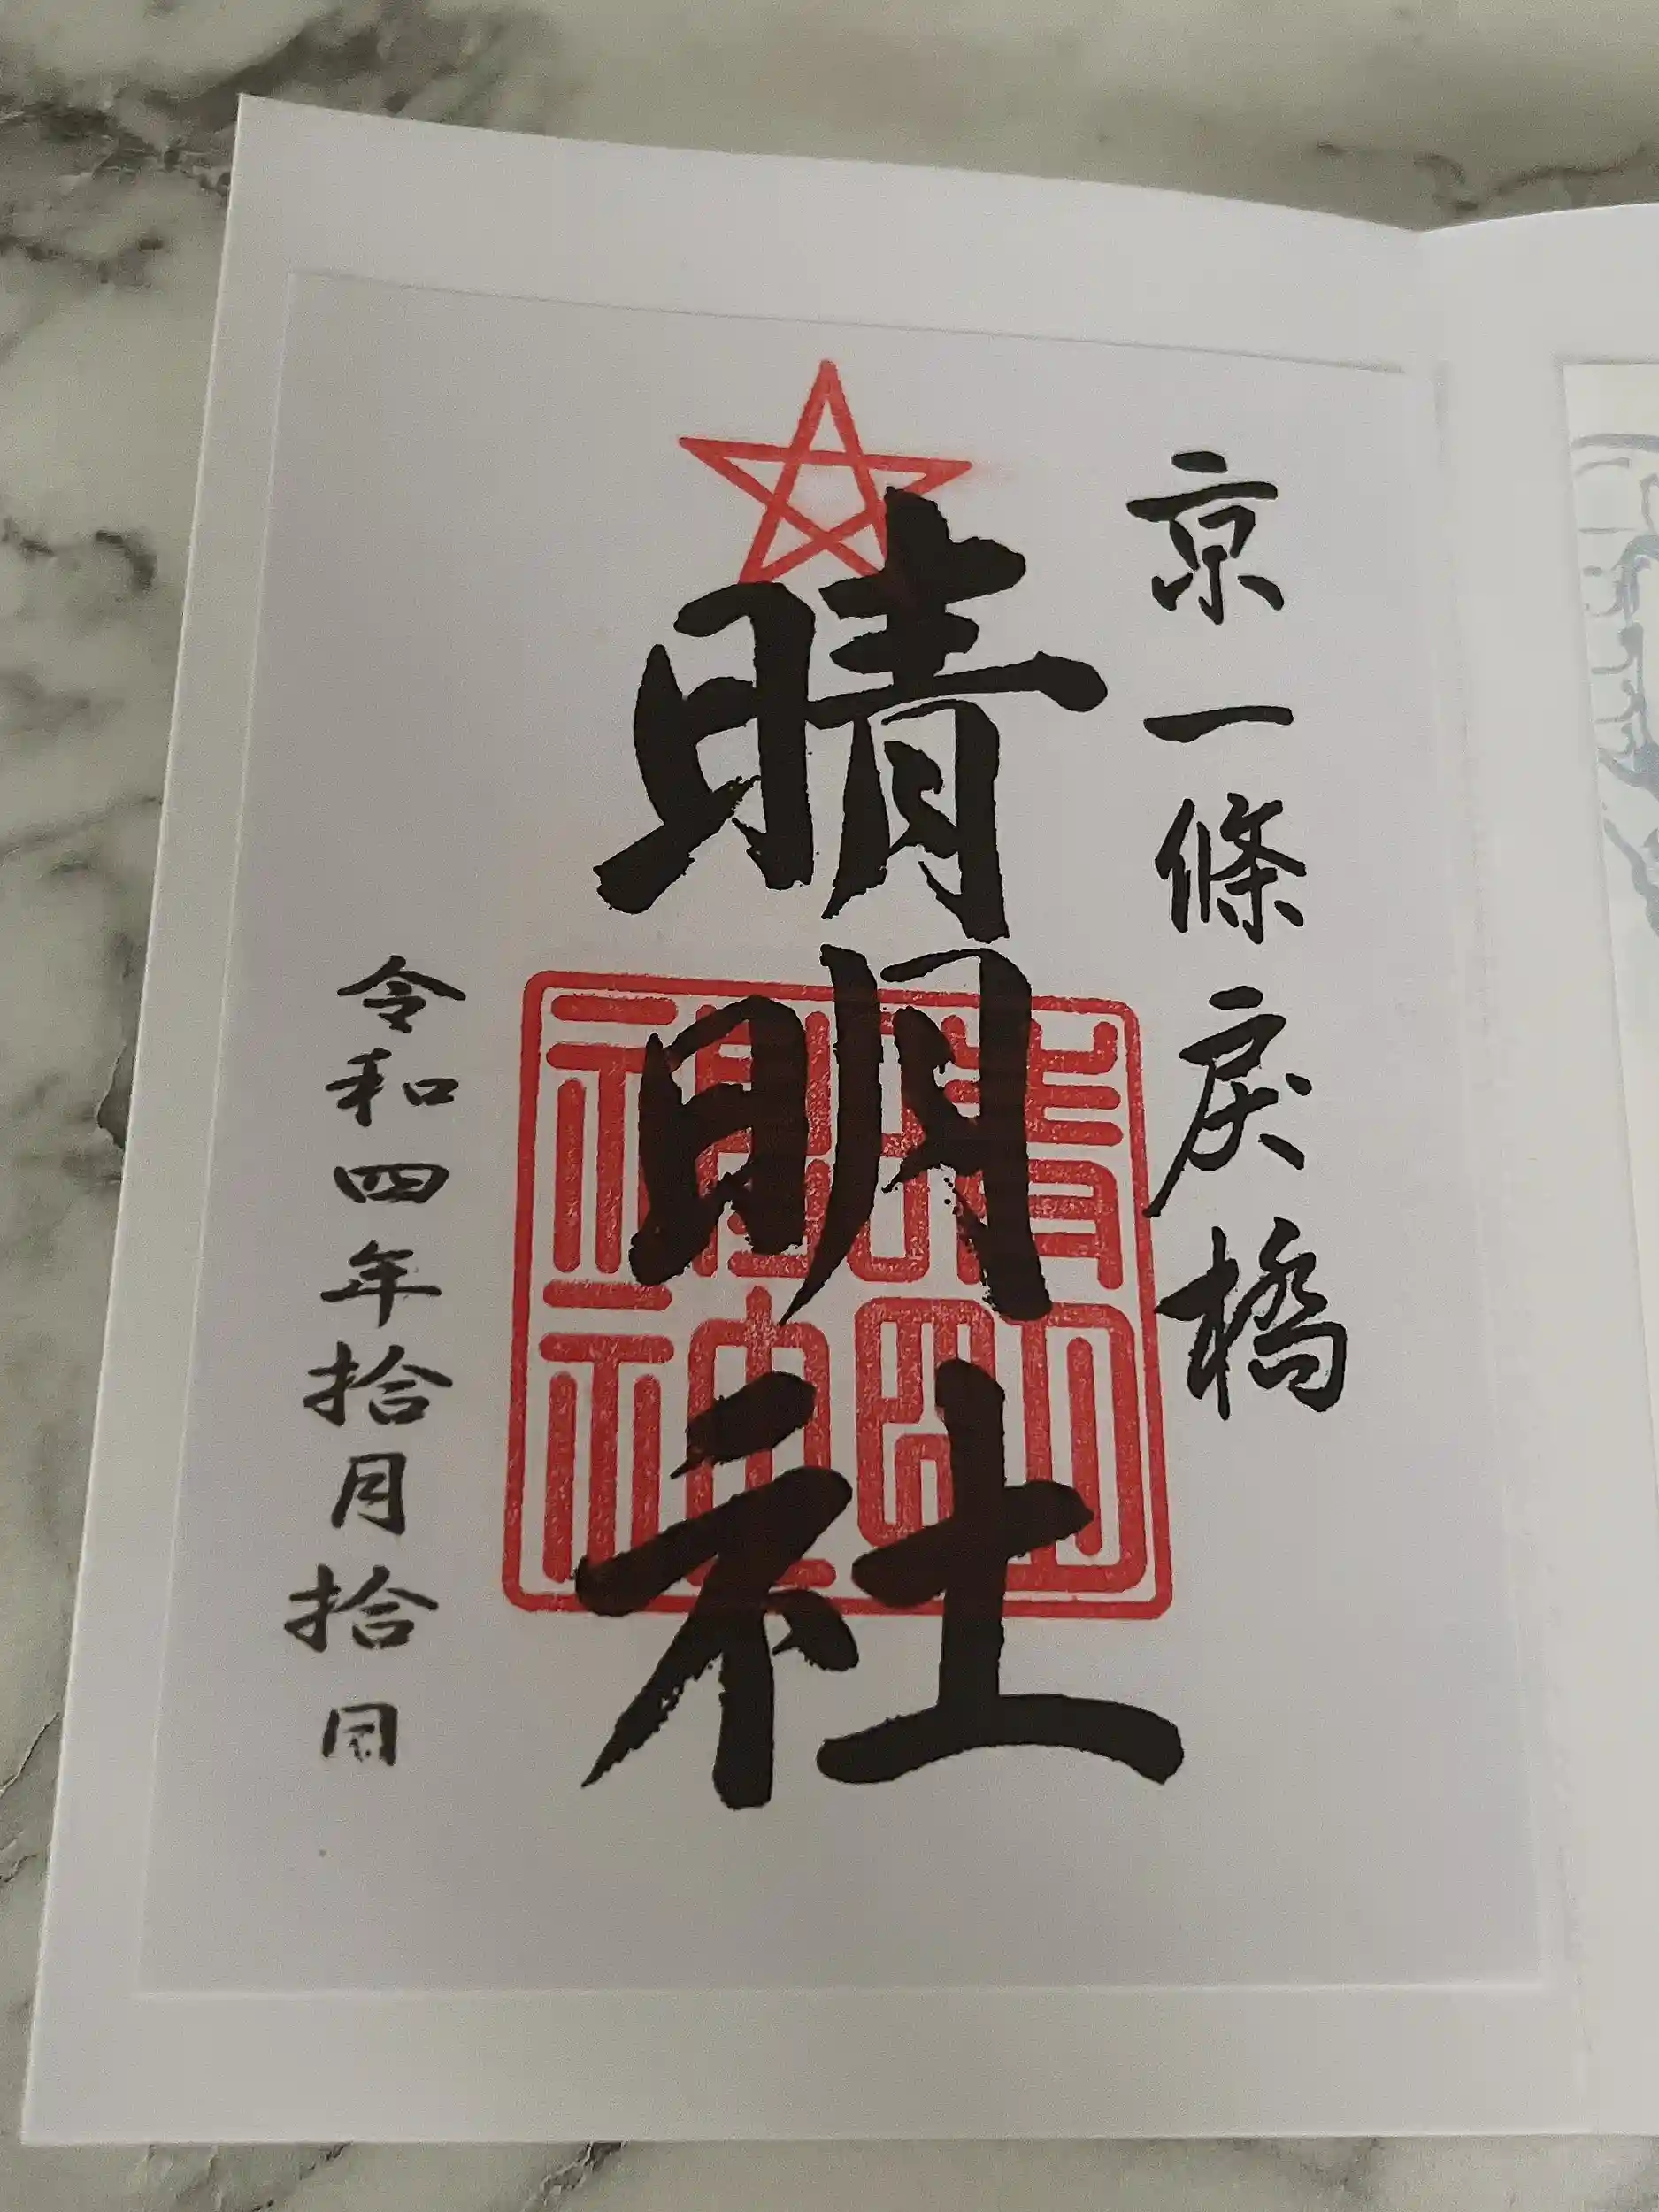 京一條戻橋
晴明社
晴明
祖神
令和四年拾月拾日